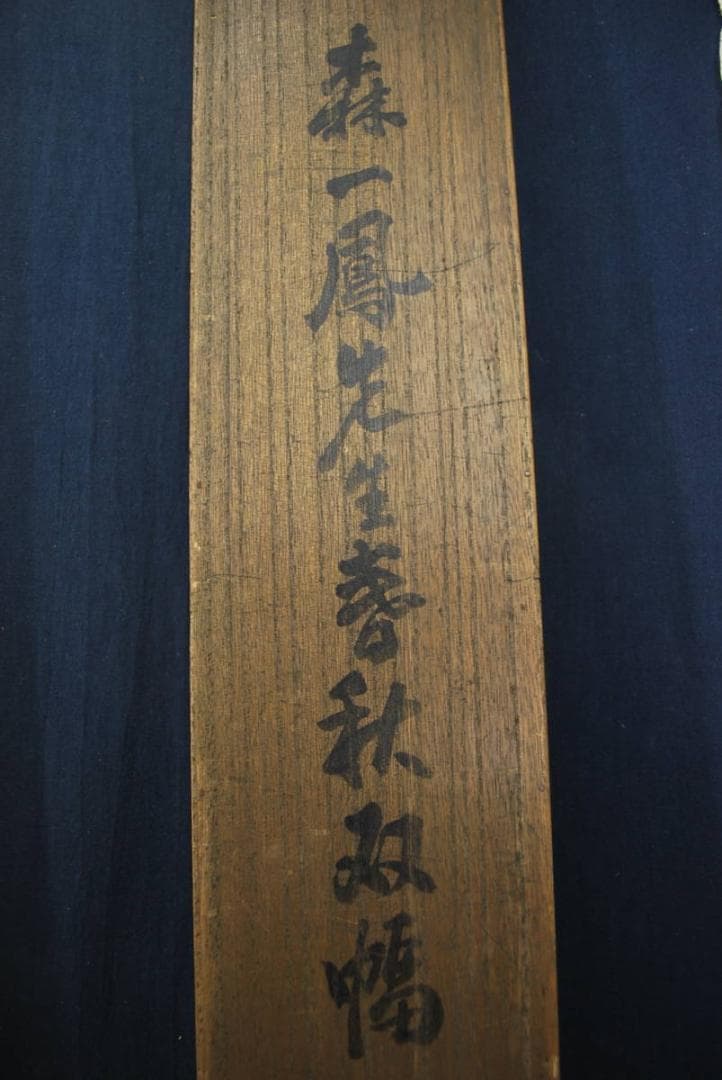 森一鳳先生春秋双幅